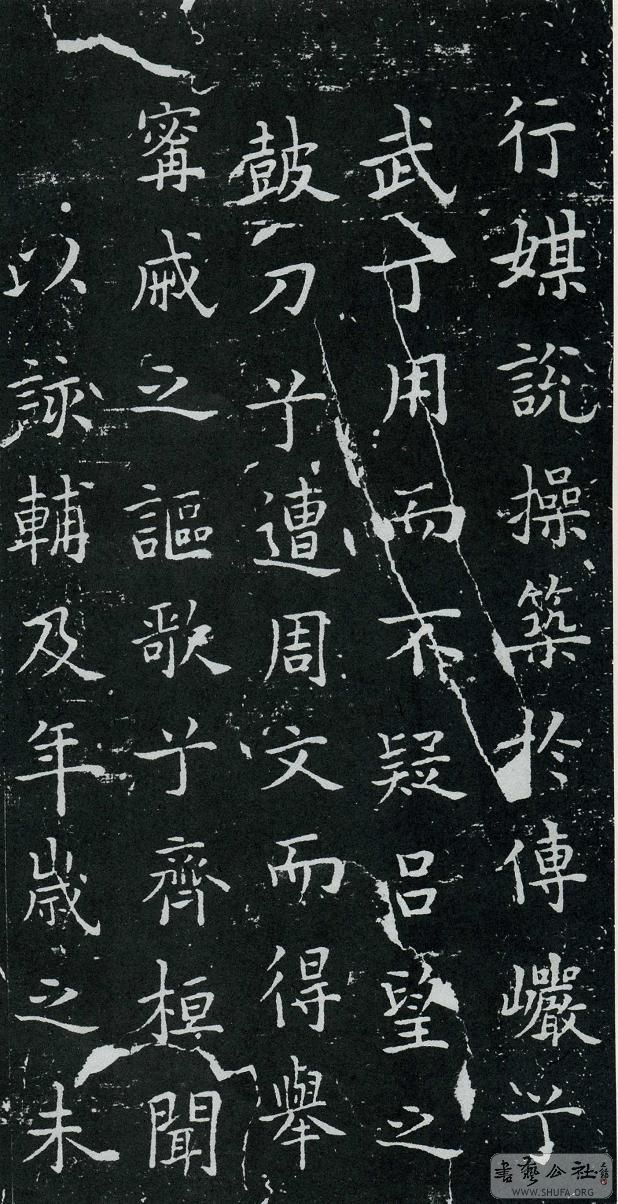 行媒說操築於傅巗兮
武丁用而不疑吕望之
皷刀兮遭周文而得舉
甯戚之謳歌兮齊桓聞
以該輔及年歲之未
書藝公社
WWW.SHUFA.ORG